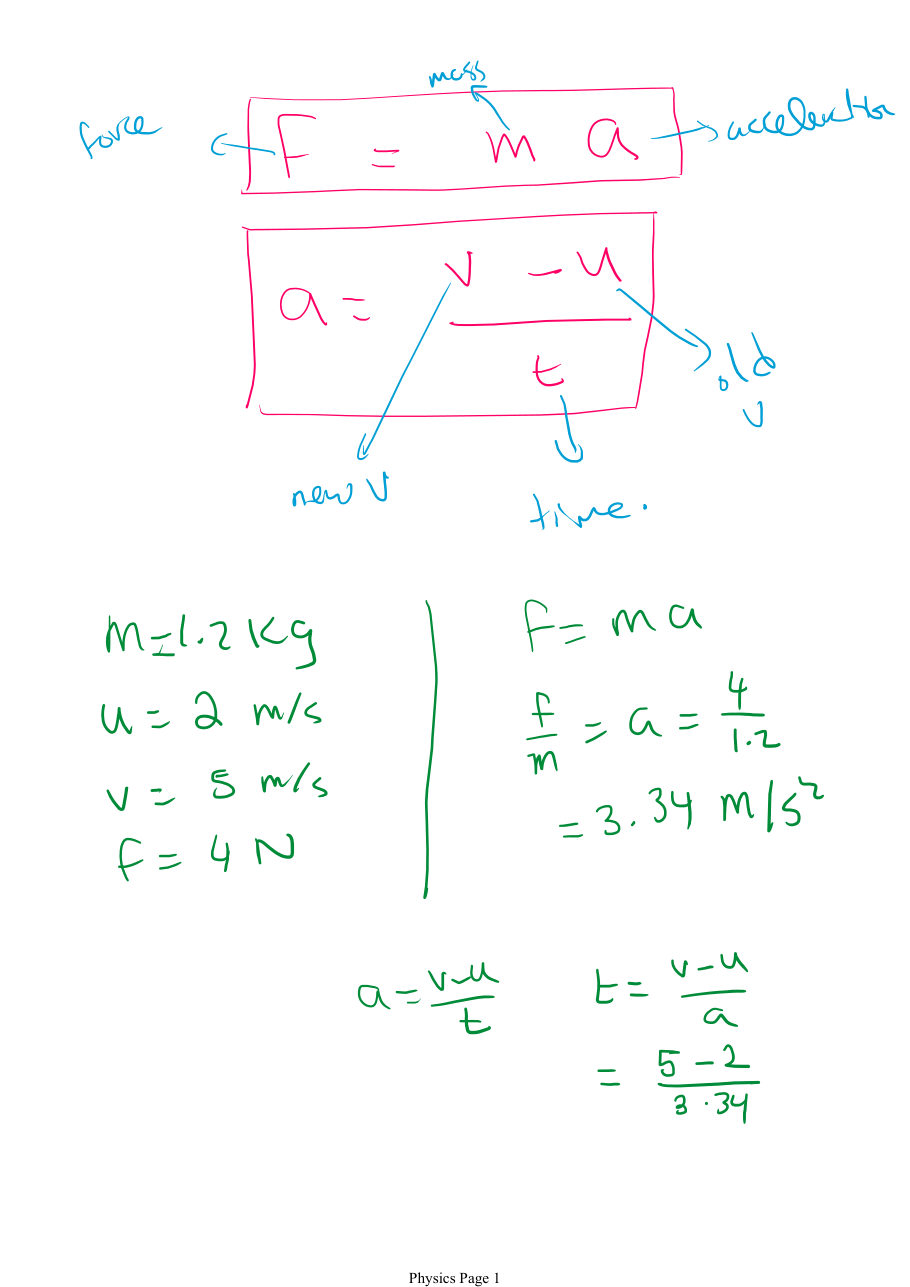 mass
force F = m a acceleration
a = v - u / t
old v
new v
time.
m = 1.2 Kg
u = 2 m/s
v = 5 m/s
f = 4 N
F = ma
f/m = a = 4/1.2
= 3.34 m/s²
a = v-u/t
t = v-u/a
= 5-2/3.34
Physics Page 1